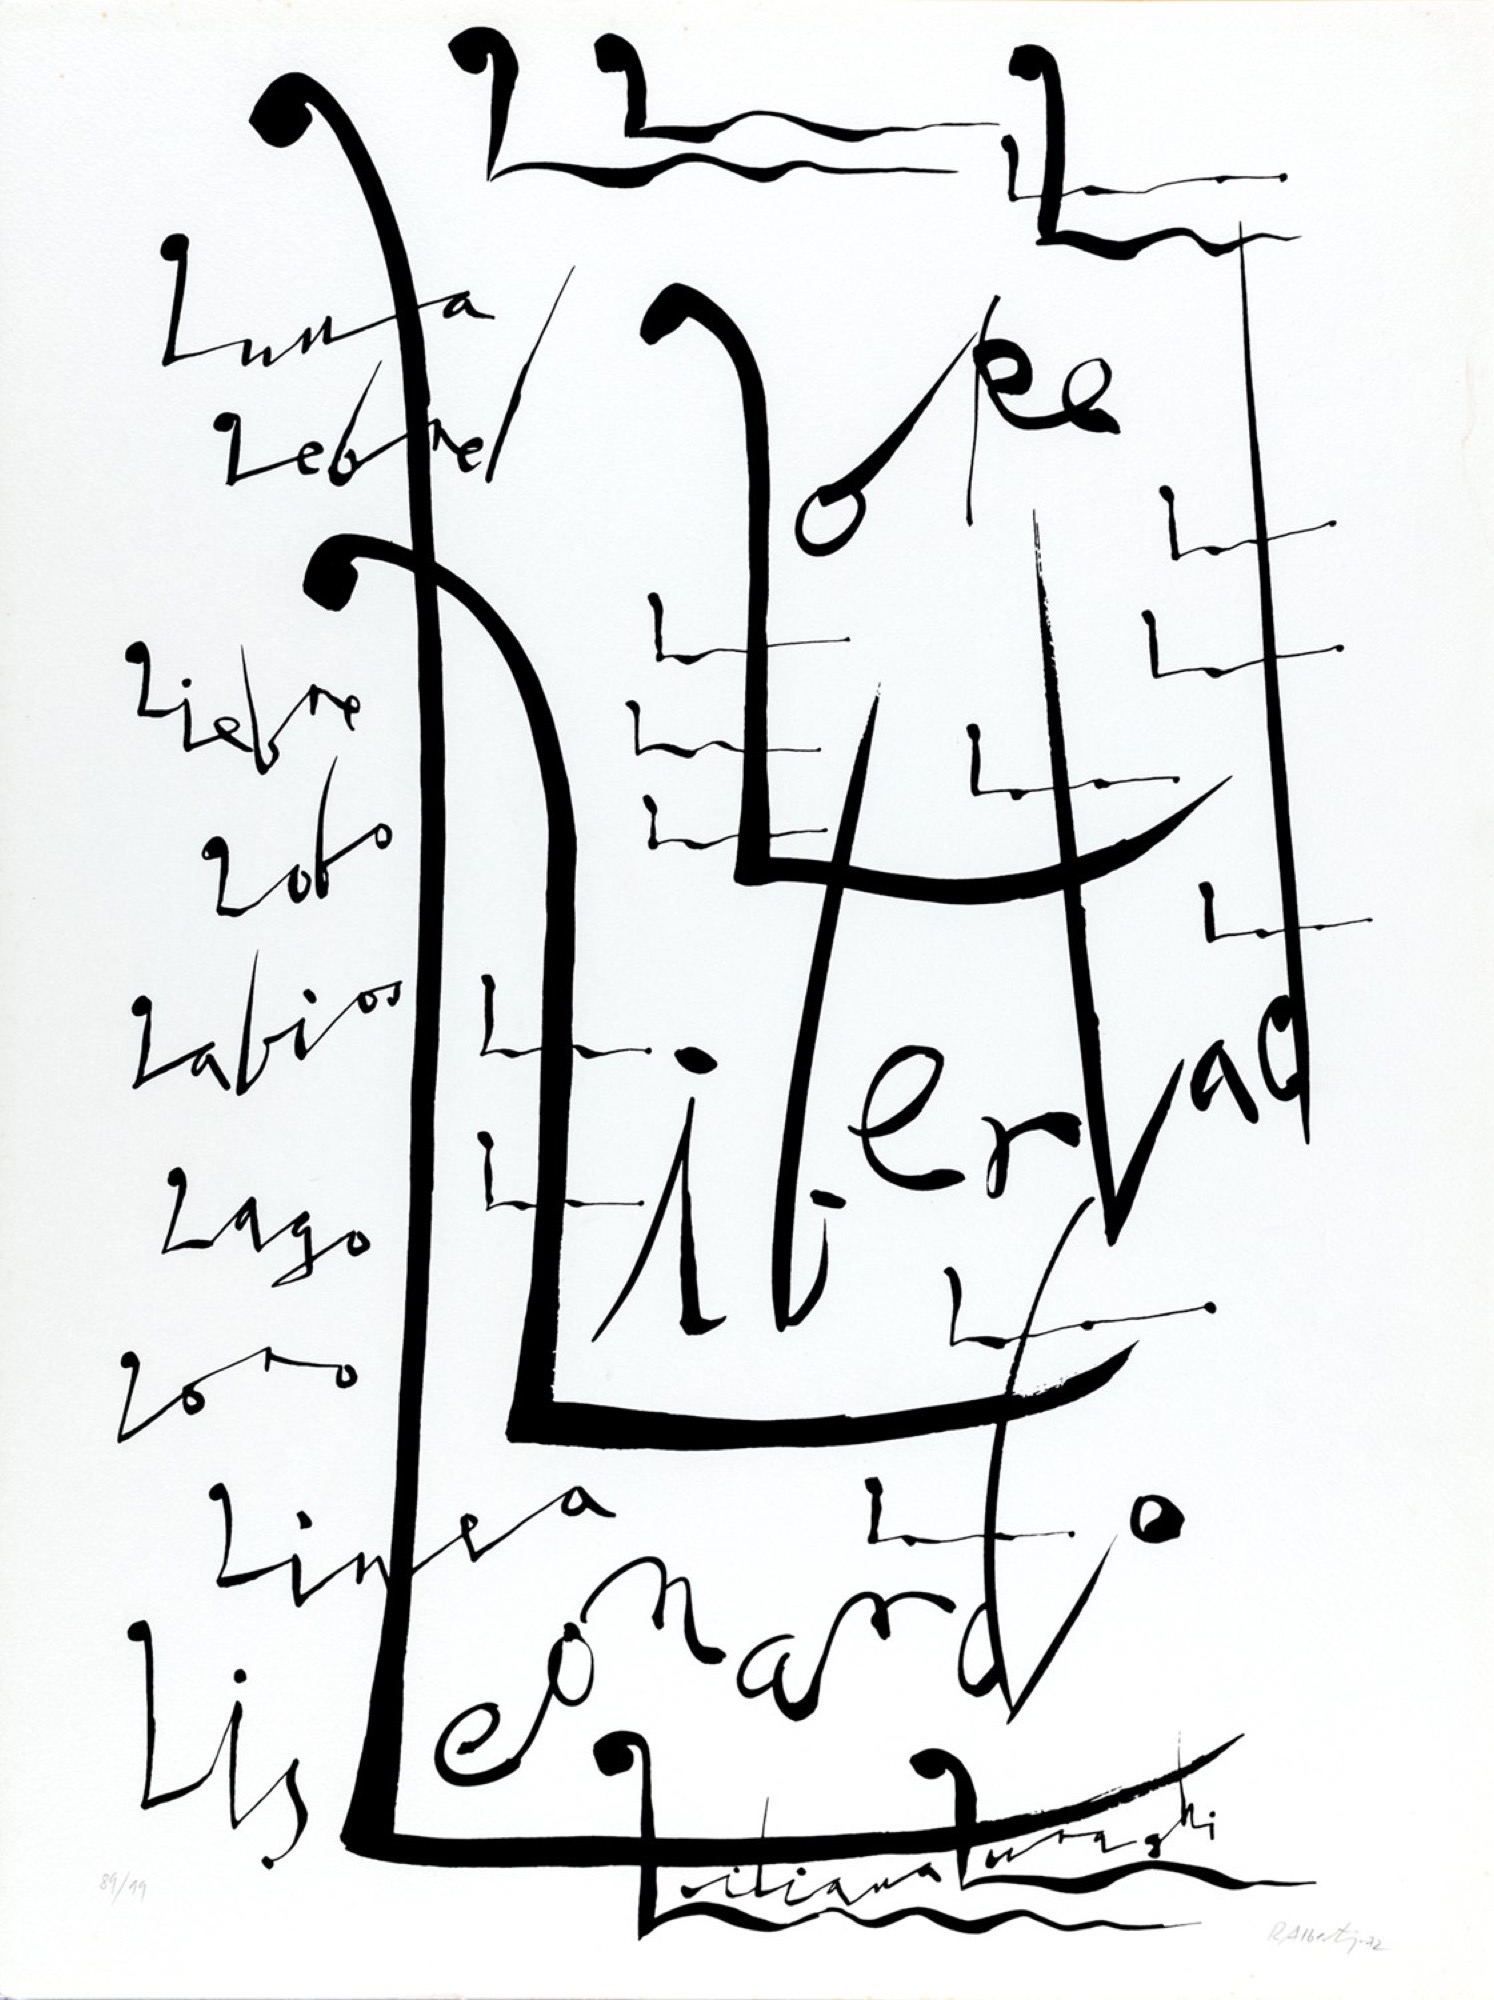 L L L
L
Luna
Lope
Lebrel
L
L
L
Liebre
L
L
L
Lobo
L
L
Labios
Libertad
L
Lago
L
Loro
L
Linea
Leonardo
Lis
Liliana Luraghi
89/99
R. Alberti, 72